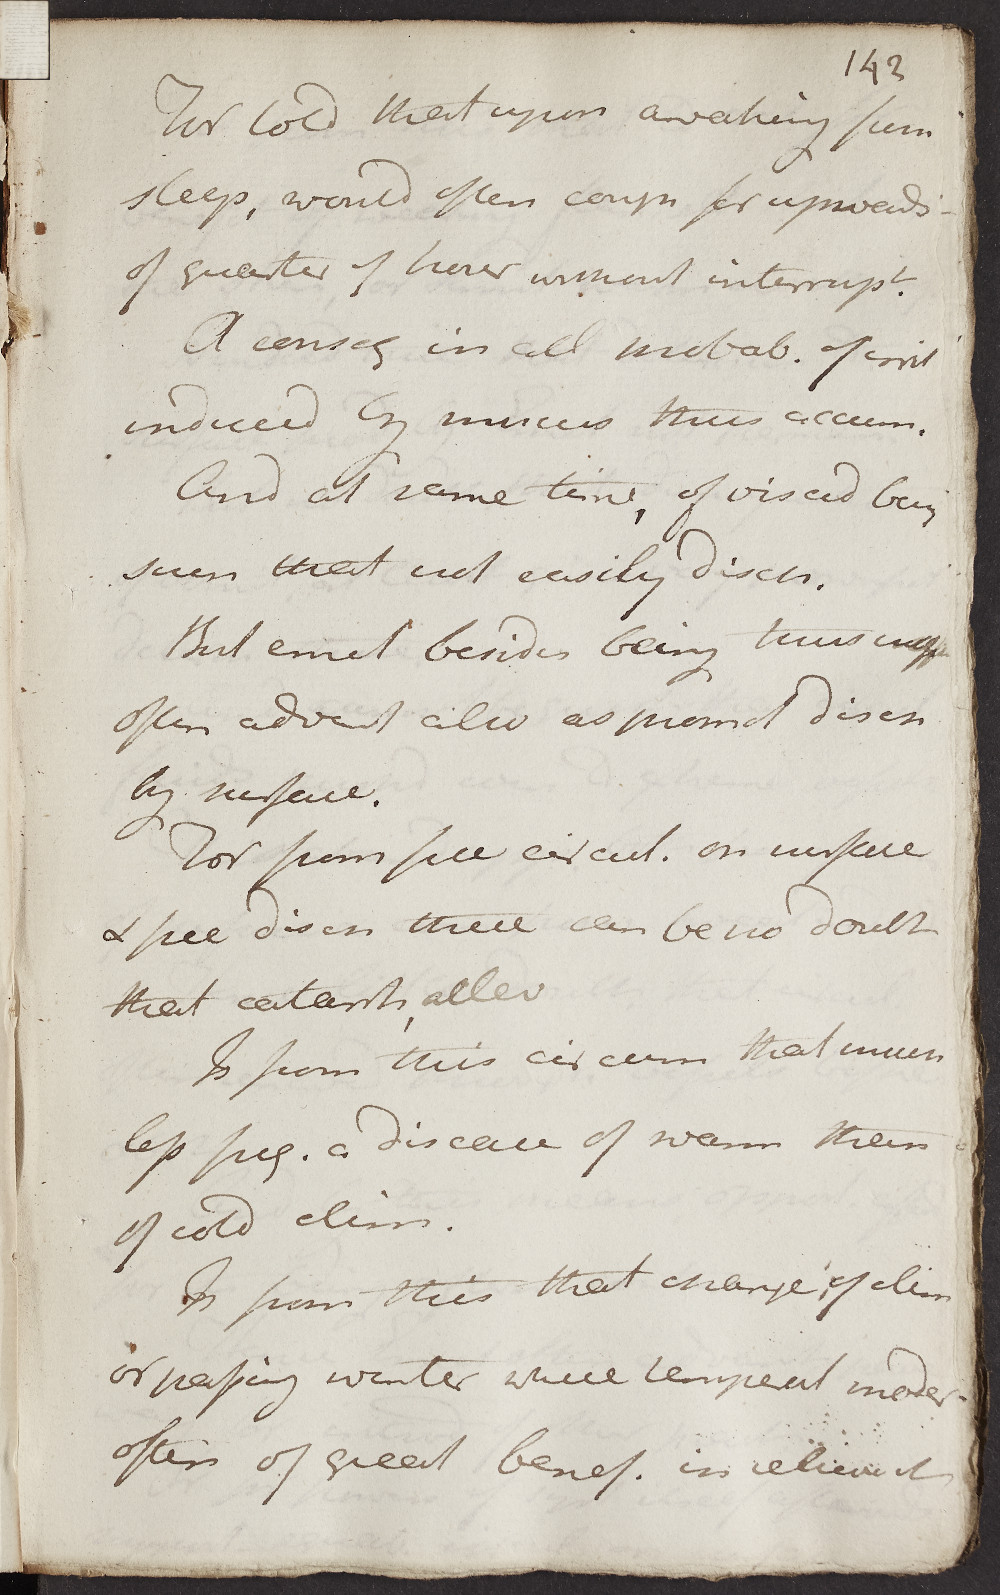 143
For told that upon awaking from
sleep, would often cough for upwards
of quarter of hour without interrupt.
A conseq in all probab. of irrit
induced by mucus thus accum.
And at same time, of viscid being
such that not easily disch.
But emet besides being thus
often advant also as promot disch
by surface.
For from free circul. on surface
& free disch there can be no doubt
that catarrh, allev
Is from this circum that much
less freq. a disease of warm than
of cold clim.
Is from this that change of clim
or passing winter where temperat moder
often of great benef. in relieving